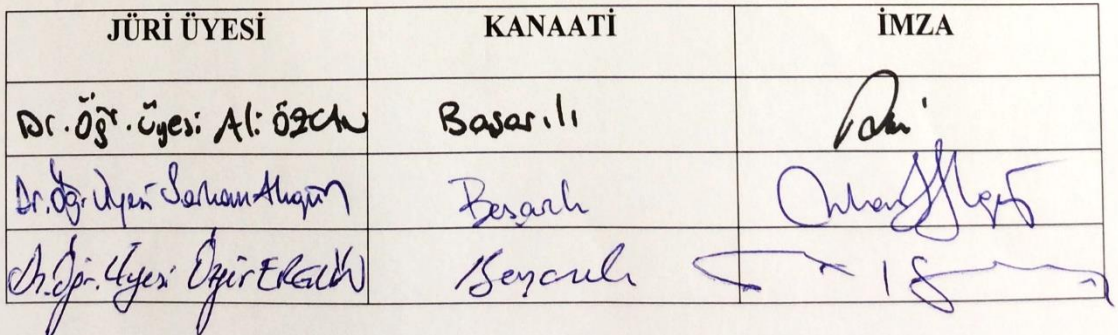 JÜRİ ÜYESİ KANAATİ İMZA
Dr. Öğr. Üyesi Ali ÖZCAN Başarılı
Dr. Öğr. Üyesi Başarılı
Dr. Öğr. Üyesi Özgür ERGÜN Başarılı